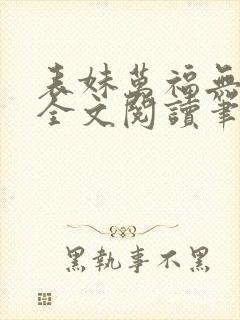 表妹萬福無
全文閱讀筆
黑執事不黑